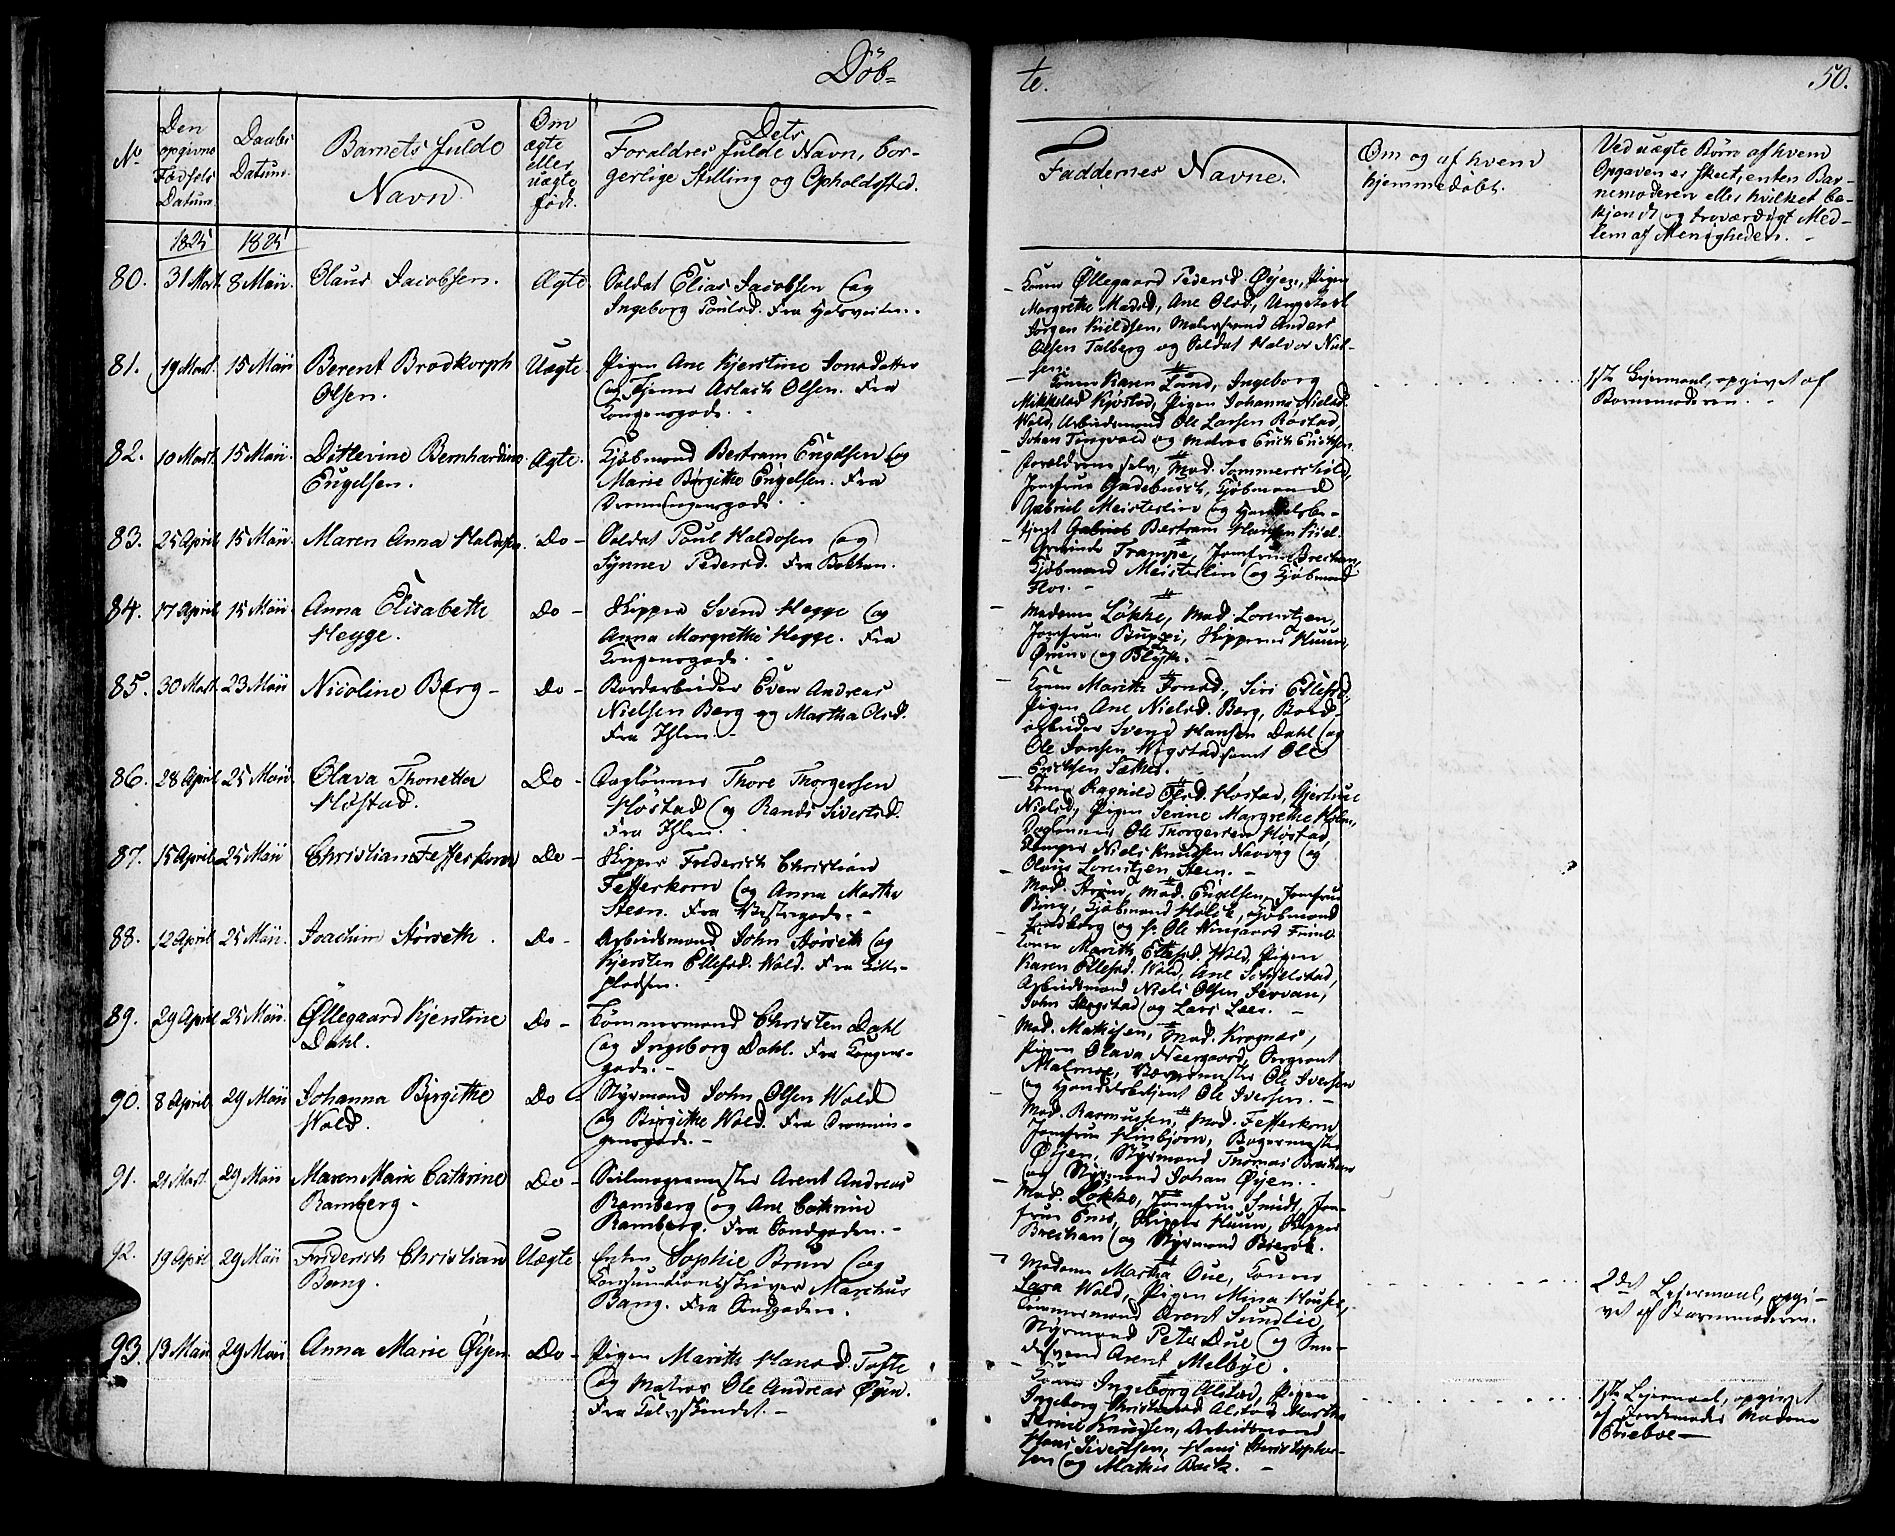 Döb-
te.
50.
No
Den opgivne Fødsels Datum.
Daabs Datum.
Barnets fulde Navn
Om ægte eller uægte født.
Dets Forældres fulde Navn, borgerlige Stilling og Opholdsted.
Faddernes Navne.
Om og af hvem hjemmedøbt.
Ved uægte Børn af hvem Opgaven er skeet, enten Barnemoderen eller hvilket bekjendt og troværdigt Medlem af Menigheden.
1825
1825
80. 31 Mart. 8 Maii. Olaus Jacobsen. Ægte
Soldat Elias Jacobsen og
Ingeborg Poulsd. Fra
Konne Øllegaard Pedersd. Øyen, Pigen
Margrethe Madsd, Ane Olsd, Ungkarl
Jørgen Kieldsen, Anders
Olsen Talberg og Soldat Halvor Niel-
sen.
81. 19 Mart. 15 Maii Berent Brodkorph Uægte
Olsen.
Pigen Ane Kjerstine Jonsdatter
og Tjener Aslach Olsen. Fra
Kongensgade.
Konen Karen Lund, Ingeborg
Mikkelsd Kjøstad, Pigen Johanna Nielsd.
Wold, Arbeidsmand Ole Larsen Røstad,
Johan Tingvold og Matros Erich Erichsen.
1ste Leiermaal, opgivet af
Barnemoderen.
82. 10 Mart. 15 Maii. Ditlevine Bernhardine Ægte.
Engelsen.
Kjøbmand Bertram Engelsen og
Marie Birgitte Engelsen. Fra
Dronningensgade.
Forældrene selv, Mad. Sommerschiold,
Jomfrue Gadebusch, Kjøbmand
Gabriel Meisterlin og Handelsbe-
tjent Gabriel Bertram Hansen Kiel.
83. 25 April 15 Maii. Maren Anna Haldosen. Do -
Soldat Poul Haldosen og
Synnev Pedersd. Fra Bakken.
Grevinde Trampe, Jomfrue Brechan,
Kjøbmand Meisterlin og Kjøbmand
Floer.
84. 17 April 15 Maii. Anna Elisabeth Do -
Hegge.
Skipper Svend Hegge og
Anna Margrethe Hegge. Fra
Kongensgade.
Madame Løkke, Mad. Lorentzen,
Jomfrue Skipperne Huun,
Bruun og
85. 30 Mart. 23 Maii Nicoline Berg - Do -
Bordarbeider Even Andreas
Nielsen Berg og Martha Olsd.
Fra Ihlen.
Konen Marith Jonsd, Siri Ellefsd,
Pigen Ane Nielsd. Berg, Bord-
arbeider Svend Hansen Dahl og
Ole Jonsen Wigstad samt Ole
Erichsen Sæther.
86. 28 April 25 Maii. Olava Thonetta Do -
Høstad.
Dagleiner Thore Thorgersen
Høstad og Randi Sivertsd.
Fra Ihlen.
Konen Ragnild Olsd. Høstad, Gjertrue
Nielsd, Pigen Serine Margrethe Holm,
Dagleiner Ole Thorgersen Høstad,
Niels Knudsen Navvig og
Olaus Lorentzen Stein.
87. 15 April 25 Maii Christian Fefferkorn Do -
Skipper Friderich Christian
Fefferkorn og Anna Martha
Steen. Fra Vestregade.
Mad. Strøm, Mad. Engelsen, Jomfrue
Bing, Kjøbmand Holck, Kjøbmand
Lundberg og Hr. Ole Wingaard Finne
88. 12 April 25 Maii. Joachim Størseth. Do -
Arbeidsmand John Størseth og
Kjersten Ellefsd. Wold. Fra
Konen Marith Ellefsd. Wold, Pigen
Karen Ellefsd. Wold, Ane
Arbeidsmand Niels Olsen Servan,
John Skogstad og Lars Lien.
89. 29 April 25 Maii. Øllegaard Kjerstine Do -
Dahl.
Tømmermand Christen Dahl
og Ingeborg Dahl. Fra Kongens-
gade.
Mad. Mathisen, Mad. Krognes,
Pigen Olava Neergaard, Sergeant
Malmoe, Ole Iversen
og Handelsbetjent Ole Iversen.
90. 8 April 29 Maii Johanna Birgithe Do
Wold.
Styrmand John Olsen Wold
og Birgithe Wold. Fra Dronnin-
gensgade.
Mad. Rasmussen, Mad. Fefferkorn
Jomfrue Hinbjorn, Bagermester
Øijen, Styrmand Thomas Brechan
og Styrmand Johan Øijen.
91. 21 Mart. 29 Maii Maren Marie Cathrine Do -
Ramberg.
Seilmagermester Arent Andreas
Ramberg og Ane Cathrine
Ramberg. Fra Sandgaden.
Mad. Løkke, Jomfrue Smidt, Jom-
frue Skipper Huun, Skipper
Brechan og Styrmand
92. 19 April 29 Maii Friderich Christian Uægte
Bang.
Enken Sophie Brun og
Consumtionsskriver Marchus
Bang. Fra Sandgaden.
Madame Martha Oue, Konen
Lava Wold, Pigen Mina
Tømmermand Arent Sundlie,
Styrmand Peter Due og
Arent Melbye.
2det Leiermaal, opgi-
vet af Barnemoderen.
93. 13 Maii 29 Maii Anna Marie Øijen Do -
Pigen Marith Hansd. Tofte
og Matros Ole Andreas Øijen.
Fra Kalvskindet.
Konen Ingeborg Alstad, Pigen
Ingeborg Christiansd Alstad, Martha
Serine Knudsen, Arbeidsmand
Hans Sivertsen, Hans Christopher-
sen og Mathis Back.
1ste Leiermaal, opgivet
af Jordemoder Madame